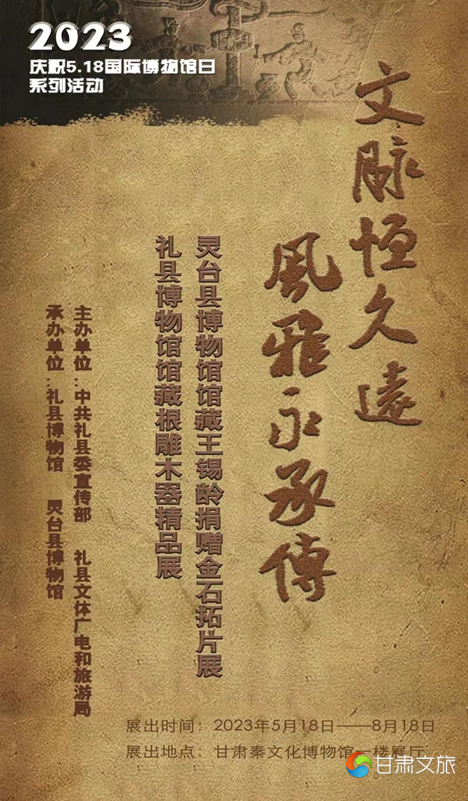 2023
庆祝5.18国际博物馆日
系列活动
文脉恒久遠
風雅永承傳
灵台县博物馆馆藏王锡龄捐赠金石拓片展
礼县博物馆馆藏根雕木器精品展
主办单位：中共礼县委宣传部 礼县文体广电和旅游局
承办单位：礼县博物馆 灵台县博物馆
展出时间：2023年5月18日——8月18日
展出地点：甘肃秦文化博物馆一楼展厅
甘肃文旅